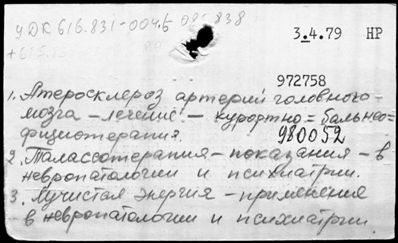 УДК 616.831-004.6 085.838
+615.
3.4.79 НР
972758
1. Атеросклероз артерий головного
мозга – лечение – курортно=бальнео=
физиотерапия. 980052
2. Талассотерапия – показания – в
невропатологии и психиатрии.
3. Лучистая энергия – применение
в невропатологии и психиатрии.